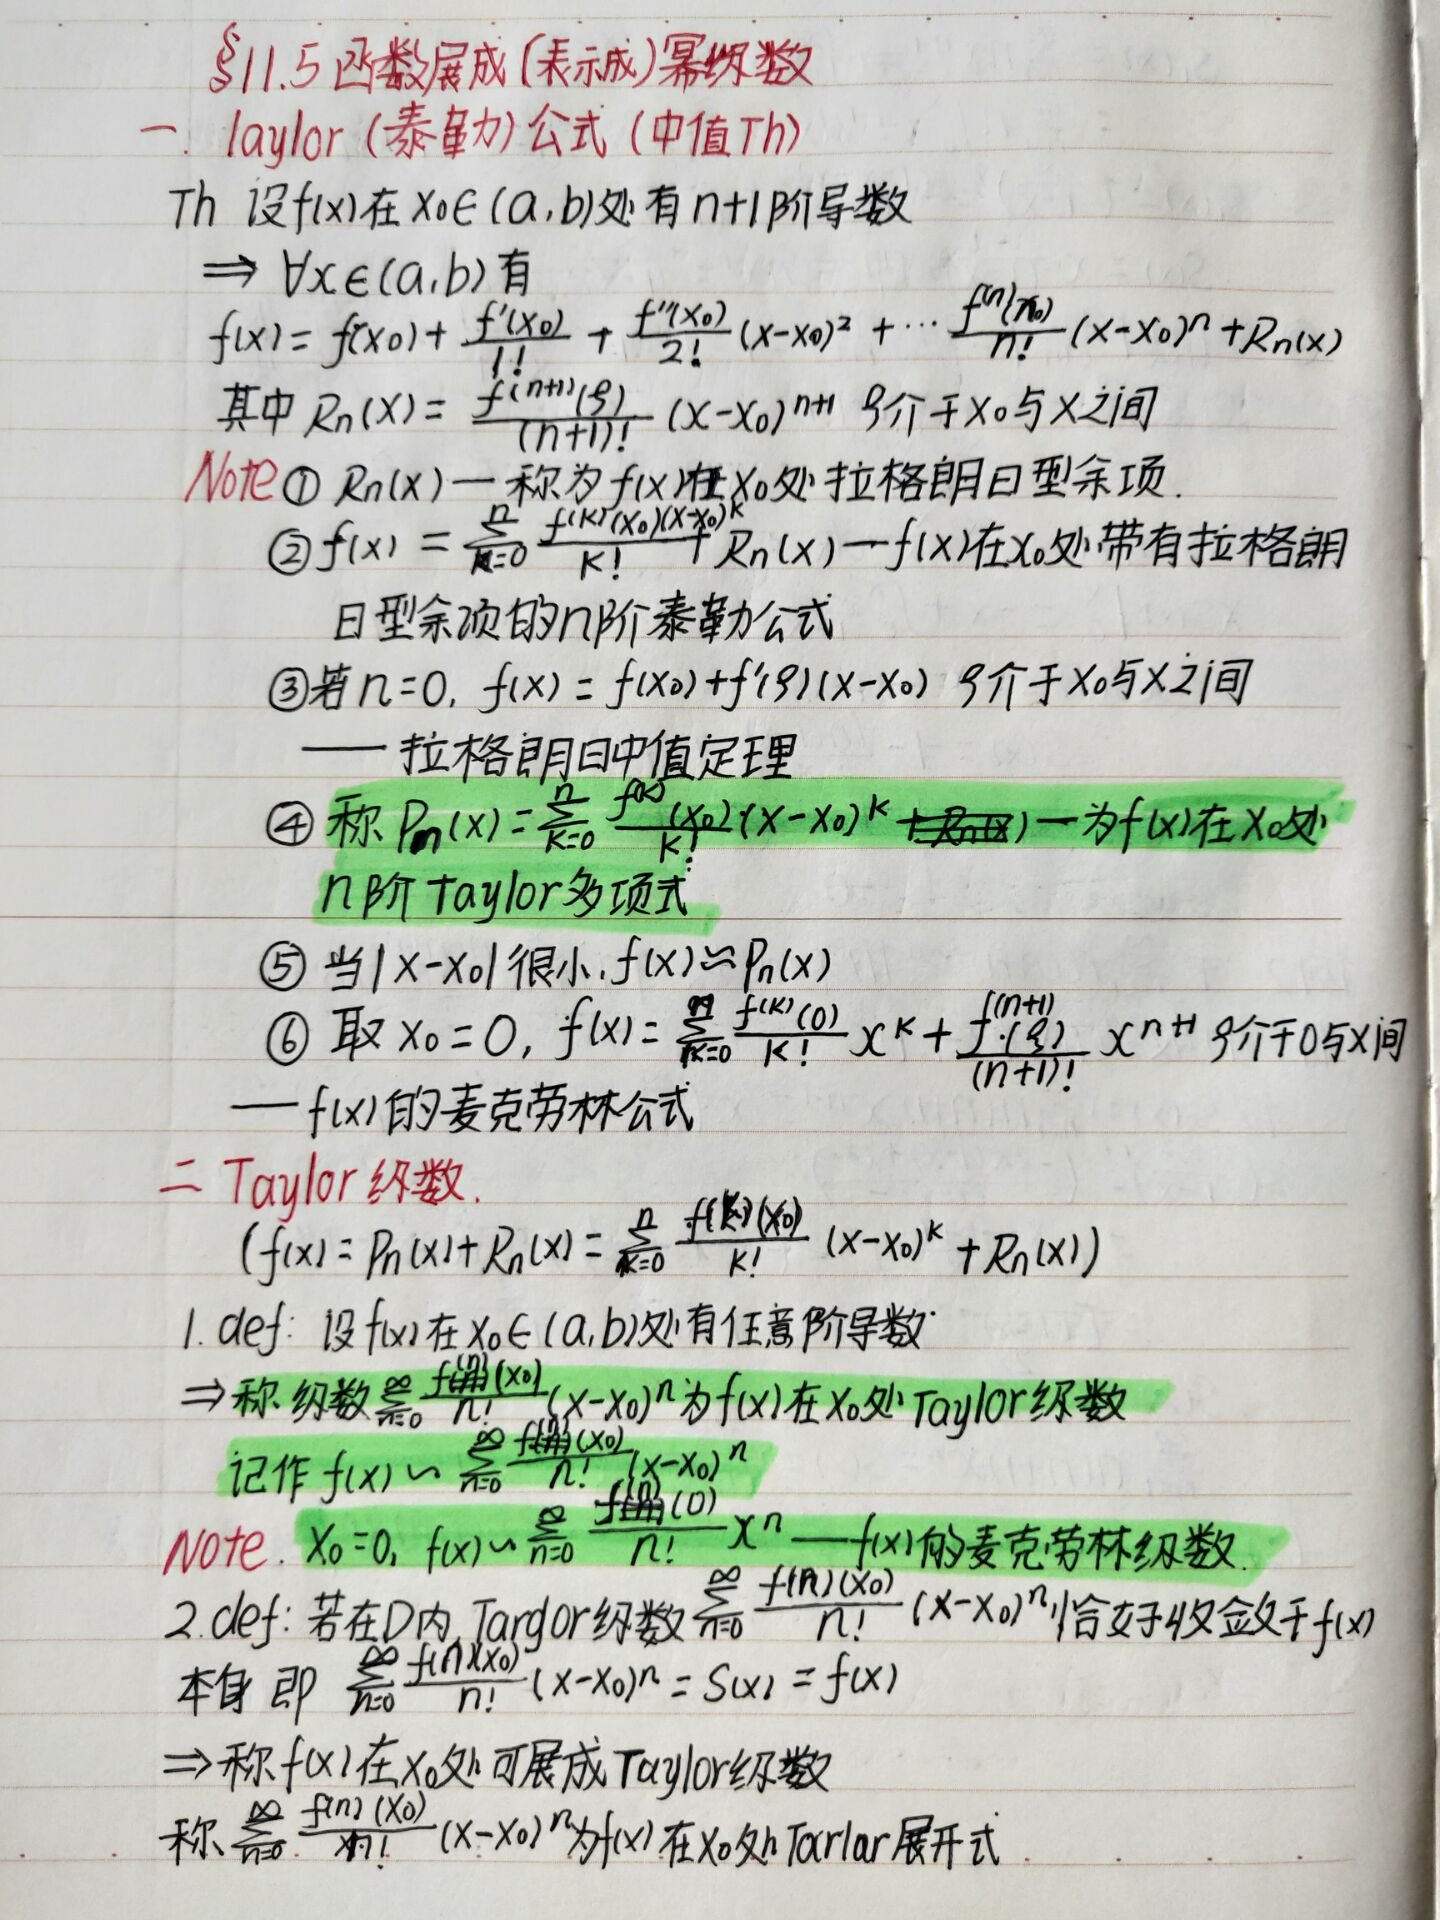 §11.5 函数展成(表示成)幂级数
一. Taylor (泰勒) 公式 (中值Th)
Th 设f(x)在x₀∈(a,b)处有n+1阶导数
⇒ ∀x∈(a,b)有
f(x) = f(x₀) + f'(x₀)/1! + f''(x₀)/2! (x-x₀)² + … f⁽ⁿ⁾(x₀)/n! (x-x₀)ⁿ + Rn(x)
其中 Rn(x) = f⁽ⁿ⁺¹⁾(ξ)/(n+1)! (x-x₀)ⁿ⁺¹ ξ介于x₀与x之间
Note ① Rn(x) — 称为f(x)在x₀处拉格朗日型余项.
② f(x) = ∑ₖ₌₀ⁿ f⁽ᵏ⁾(x₀)(x-x₀)ᵏ/k! + Rn(x) — f(x)在x₀处带有拉格朗
日型余项的n阶泰勒公式
③ 若n=0, f(x) = f(x₀)+f'(ξ)(x-x₀) ξ介于x₀与x之间
—— 拉格朗日中值定理
④ 称 Pn(x) = ∑ₖ₌₀ⁿ f⁽ᵏ⁾(x₀)/k! (x-x₀)ᵏ — 为f(x)在x₀处
n阶Taylor多项式
⑤ 当|x-x₀|很小, f(x)≈Pn(x)
⑥ 取 x₀=0, f(x) = ∑ₖ₌₀ⁿ f⁽ᵏ⁾(0)/k! xᵏ + f⁽ⁿ⁺¹⁾(ξ)/(n+1)! xⁿ⁺¹ ξ介于0与x间
—— f(x)的麦克劳林公式
二 Taylor 级数.
(f(x) = Pn(x)+Rn(x) = ∑ₖ₌₀ⁿ f⁽ᵏ⁾(x₀)/k! (x-x₀)ᵏ + Rn(x))
1. def: 设f(x)在x₀∈(a,b)处有任意阶导数
⇒ 称级数 ∑ₙ₌₀^∞ f⁽ⁿ⁾(x₀)/n! (x-x₀)ⁿ为f(x)在x₀处Taylor级数
记作 f(x) ∽ ∑ₙ₌₀^∞ f⁽ⁿ⁾(x₀)/n! (x-x₀)ⁿ
Note. x₀=0, f(x) ∽ ∑ₙ₌₀^∞ f⁽ⁿ⁾(0)/n! xⁿ —— f(x)的麦克劳林级数.
2. def: 若在D内, Targor级数 ∑ₙ₌₀^∞ f(n)(x₀)/n! (x-x₀)ⁿ 恰好收敛于f(x)
本身 即 ∑ₙ₌₀^∞ f(n)(x₀)/n! (x-x₀)ⁿ = S(x) = f(x)
⇒ 称f(x)在x₀处可展成Taylor级数
称 ∑ₙ₌₀^∞ f(n)(x₀)/n! (x-x₀)ⁿ为f(x)在x₀处Tarlar展开式.